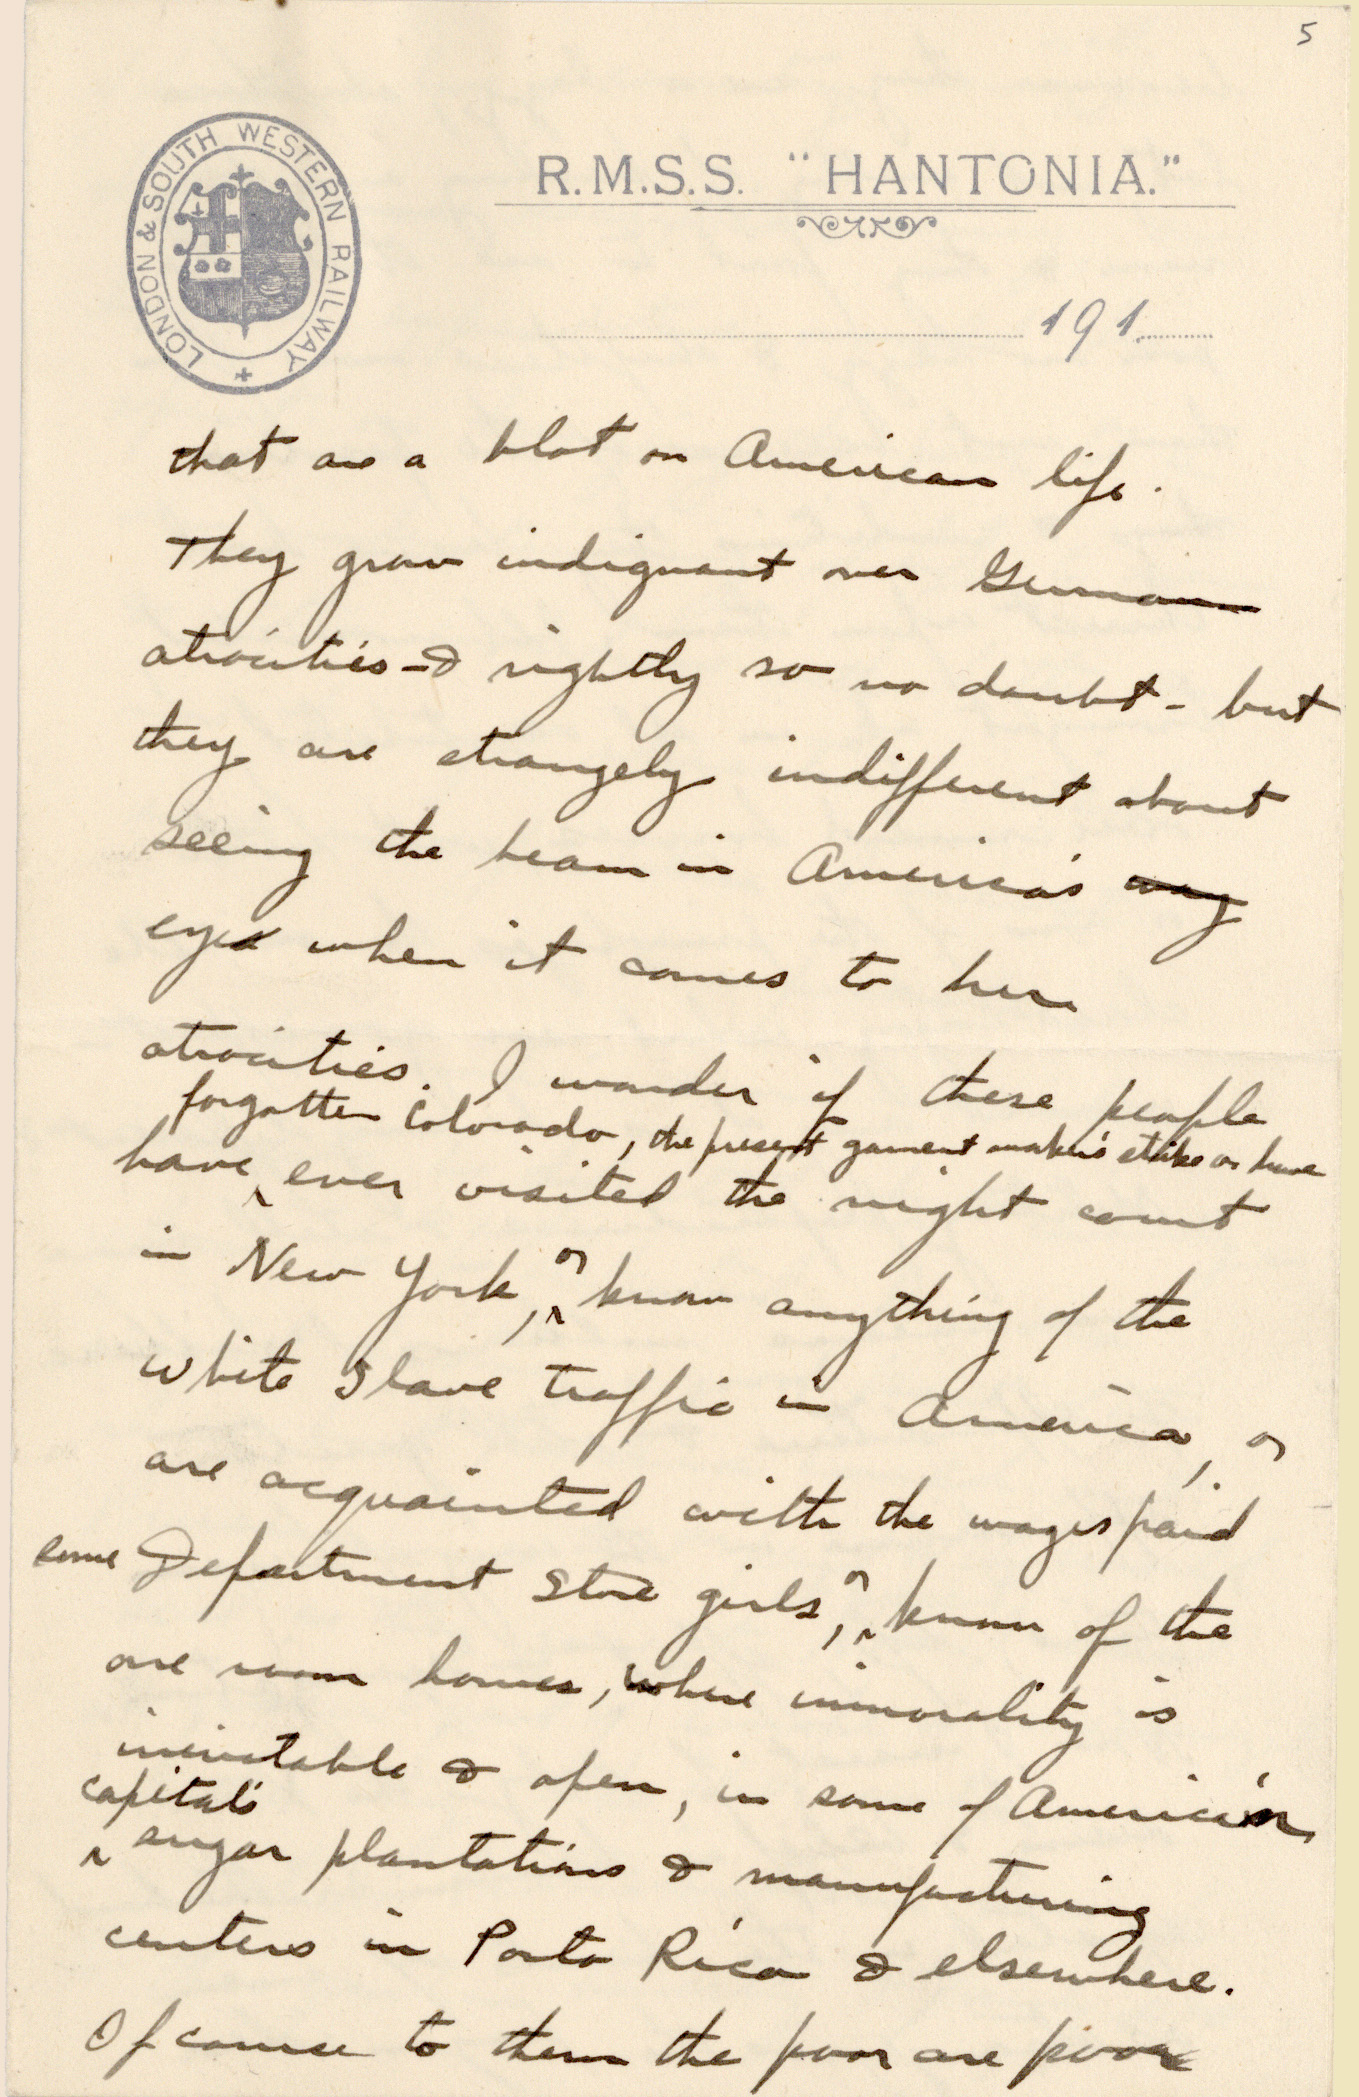 5
LONDON & SOUTH WESTERN RAILWAY
R.M.S.S. "HANTONIA."
191
that are a blot on American life.
They grow indignant over German
atrocities - & rightly so no doubt - but
they are strangely indifferent about
seeing the beam in America's way
eye when it comes to her
atrocities. I wonder if these people
forgotten Colorado, the present garment maker's strike or have
have ever visited the night court
in New York, or know anything of the
white slave traffic in America, or
are acquainted with the wages paid
some Department store girls, or know of the
one room homes, where immorality is
inevitable & open, in some of American
capital's
sugar plantations & manufacturing
centers in Porto Rico & elsewhere.
Of course to them the poor are poor